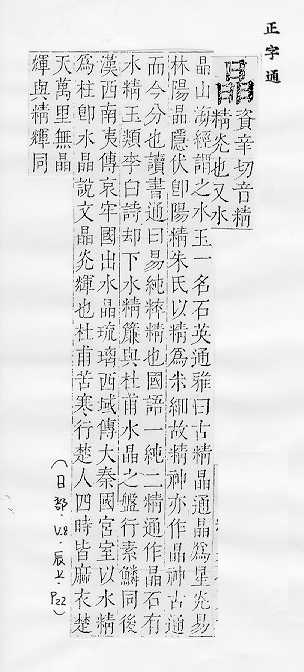 正字通
晶
資辛切音精
精光也又水
晶山海經謂之水玉一名石英通雅曰古精晶通晶爲星光易
林陽晶隱伏卽陽精朱氏以精爲米細故精神亦作晶神古通
而今分也讀書通曰易純粹精也國語一純二精通作晶石有
水精玉類李白詩却下水精簾與杜甫水晶之盤行素鱗同後
漢西南夷傳哀牢國出水晶琉璃西域傳大秦國宮室以水精
爲柱卽水晶說文晶光輝也杜甫苦寒行楚人四時皆麻衣楚
天萬里無晶
輝與精輝同
(日部.V.8.辰上.P22)